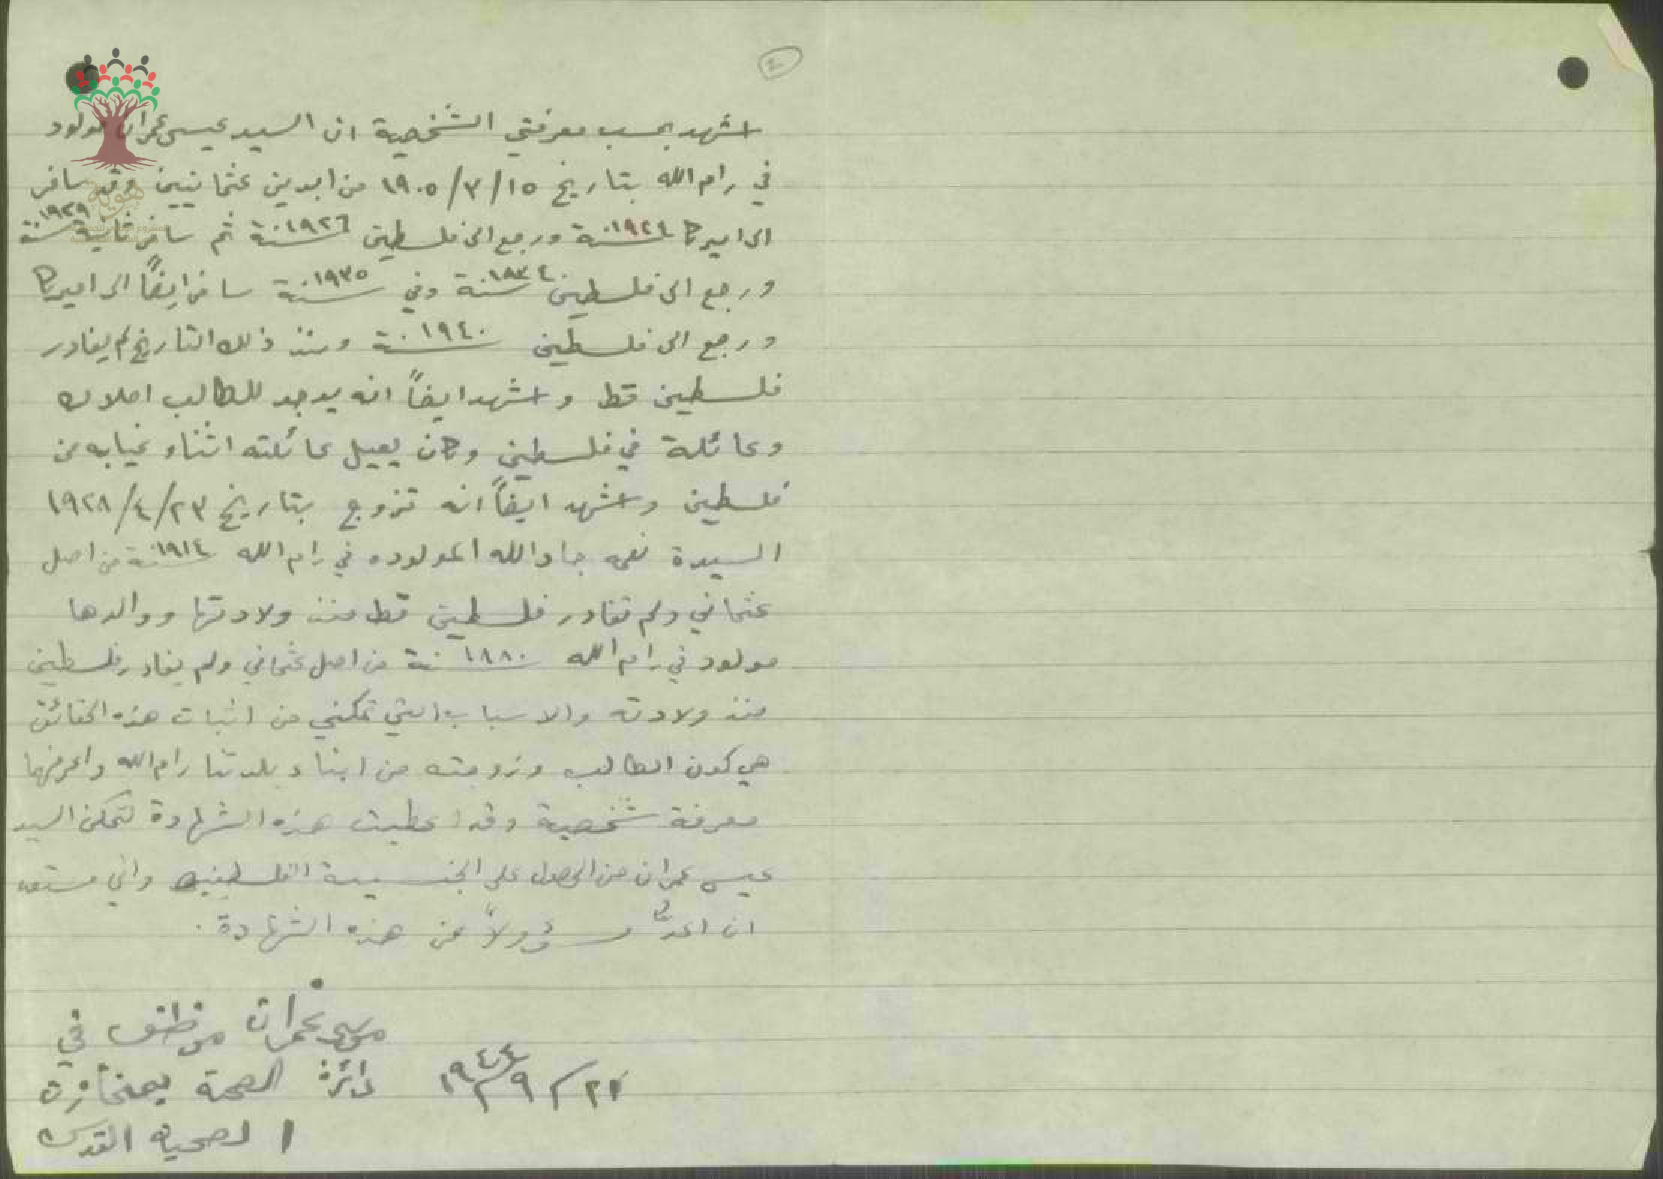 ٢
اشهد بحسب معرفتي الشخصية ان السيد عيسى عمران مولود
في رام الله بتاريخ ١٥/٣/١٩٠٥ من ابوين عثمانيين وقد سافر
الى اميركا سنة ١٩٢٤ ورجع الى فلسطين سنة ١٩٢٦ ثم سافر ثانية سنة ١٩٢٩
ورجع الى فلسطين سنة ١٩٣٤ وفي سنة ١٩٣٥ سافر ايضاً الى اميركا
ورجع الى فلسطين سنة ١٩٤٠ ومنذ ذلك التاريخ لم يغادر
فلسطين قط واشهد ايضاً انه يوجد للطالب املاك
وعائلة في فلسطين وكان يعيل عائلته اثناء غيابه عن
فلسطين واشهد ايضاً انه تزوج بتاريخ ٢٣/٤/١٩٢٨
السيدة نعمه جادالله المولوده في رام الله سنة ١٩١٤ من اصل
عثماني ولم تغادر فلسطين قط منذ ولادتها ووالدها
مولود في رام الله سنة ١٨٨٠ من اصل عثماني ولم يغادر فلسطين
منذ ولادته والاسباب التي تمكنني من اثبات هذه الحقائق
هي كون الطالب وزوجته من ابناء بلدتنا رام الله واعرفهما
معرفة شخصية وقد اعطيت هذه الشهادة لتمكن السيد
عيسى عمران من الحصول على الجنسية الفلسطينية واني مستعد
ان اعد مسؤولاً عن هذه الشهادة.
موسى عمران موظف في
دائرة الصحة بمخازن
الصحية القدس
٩/١٩٤٤
هوية